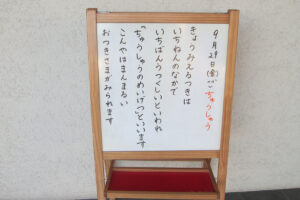 9月29日(金)ちゅうしゅう
きょうみえるつきは
いちねんのなかで
いちばんうつくしいといわれ
「ちゅうしゅうのめいげつ」といいます
こんやはまんまるい
おつきさまがみられます